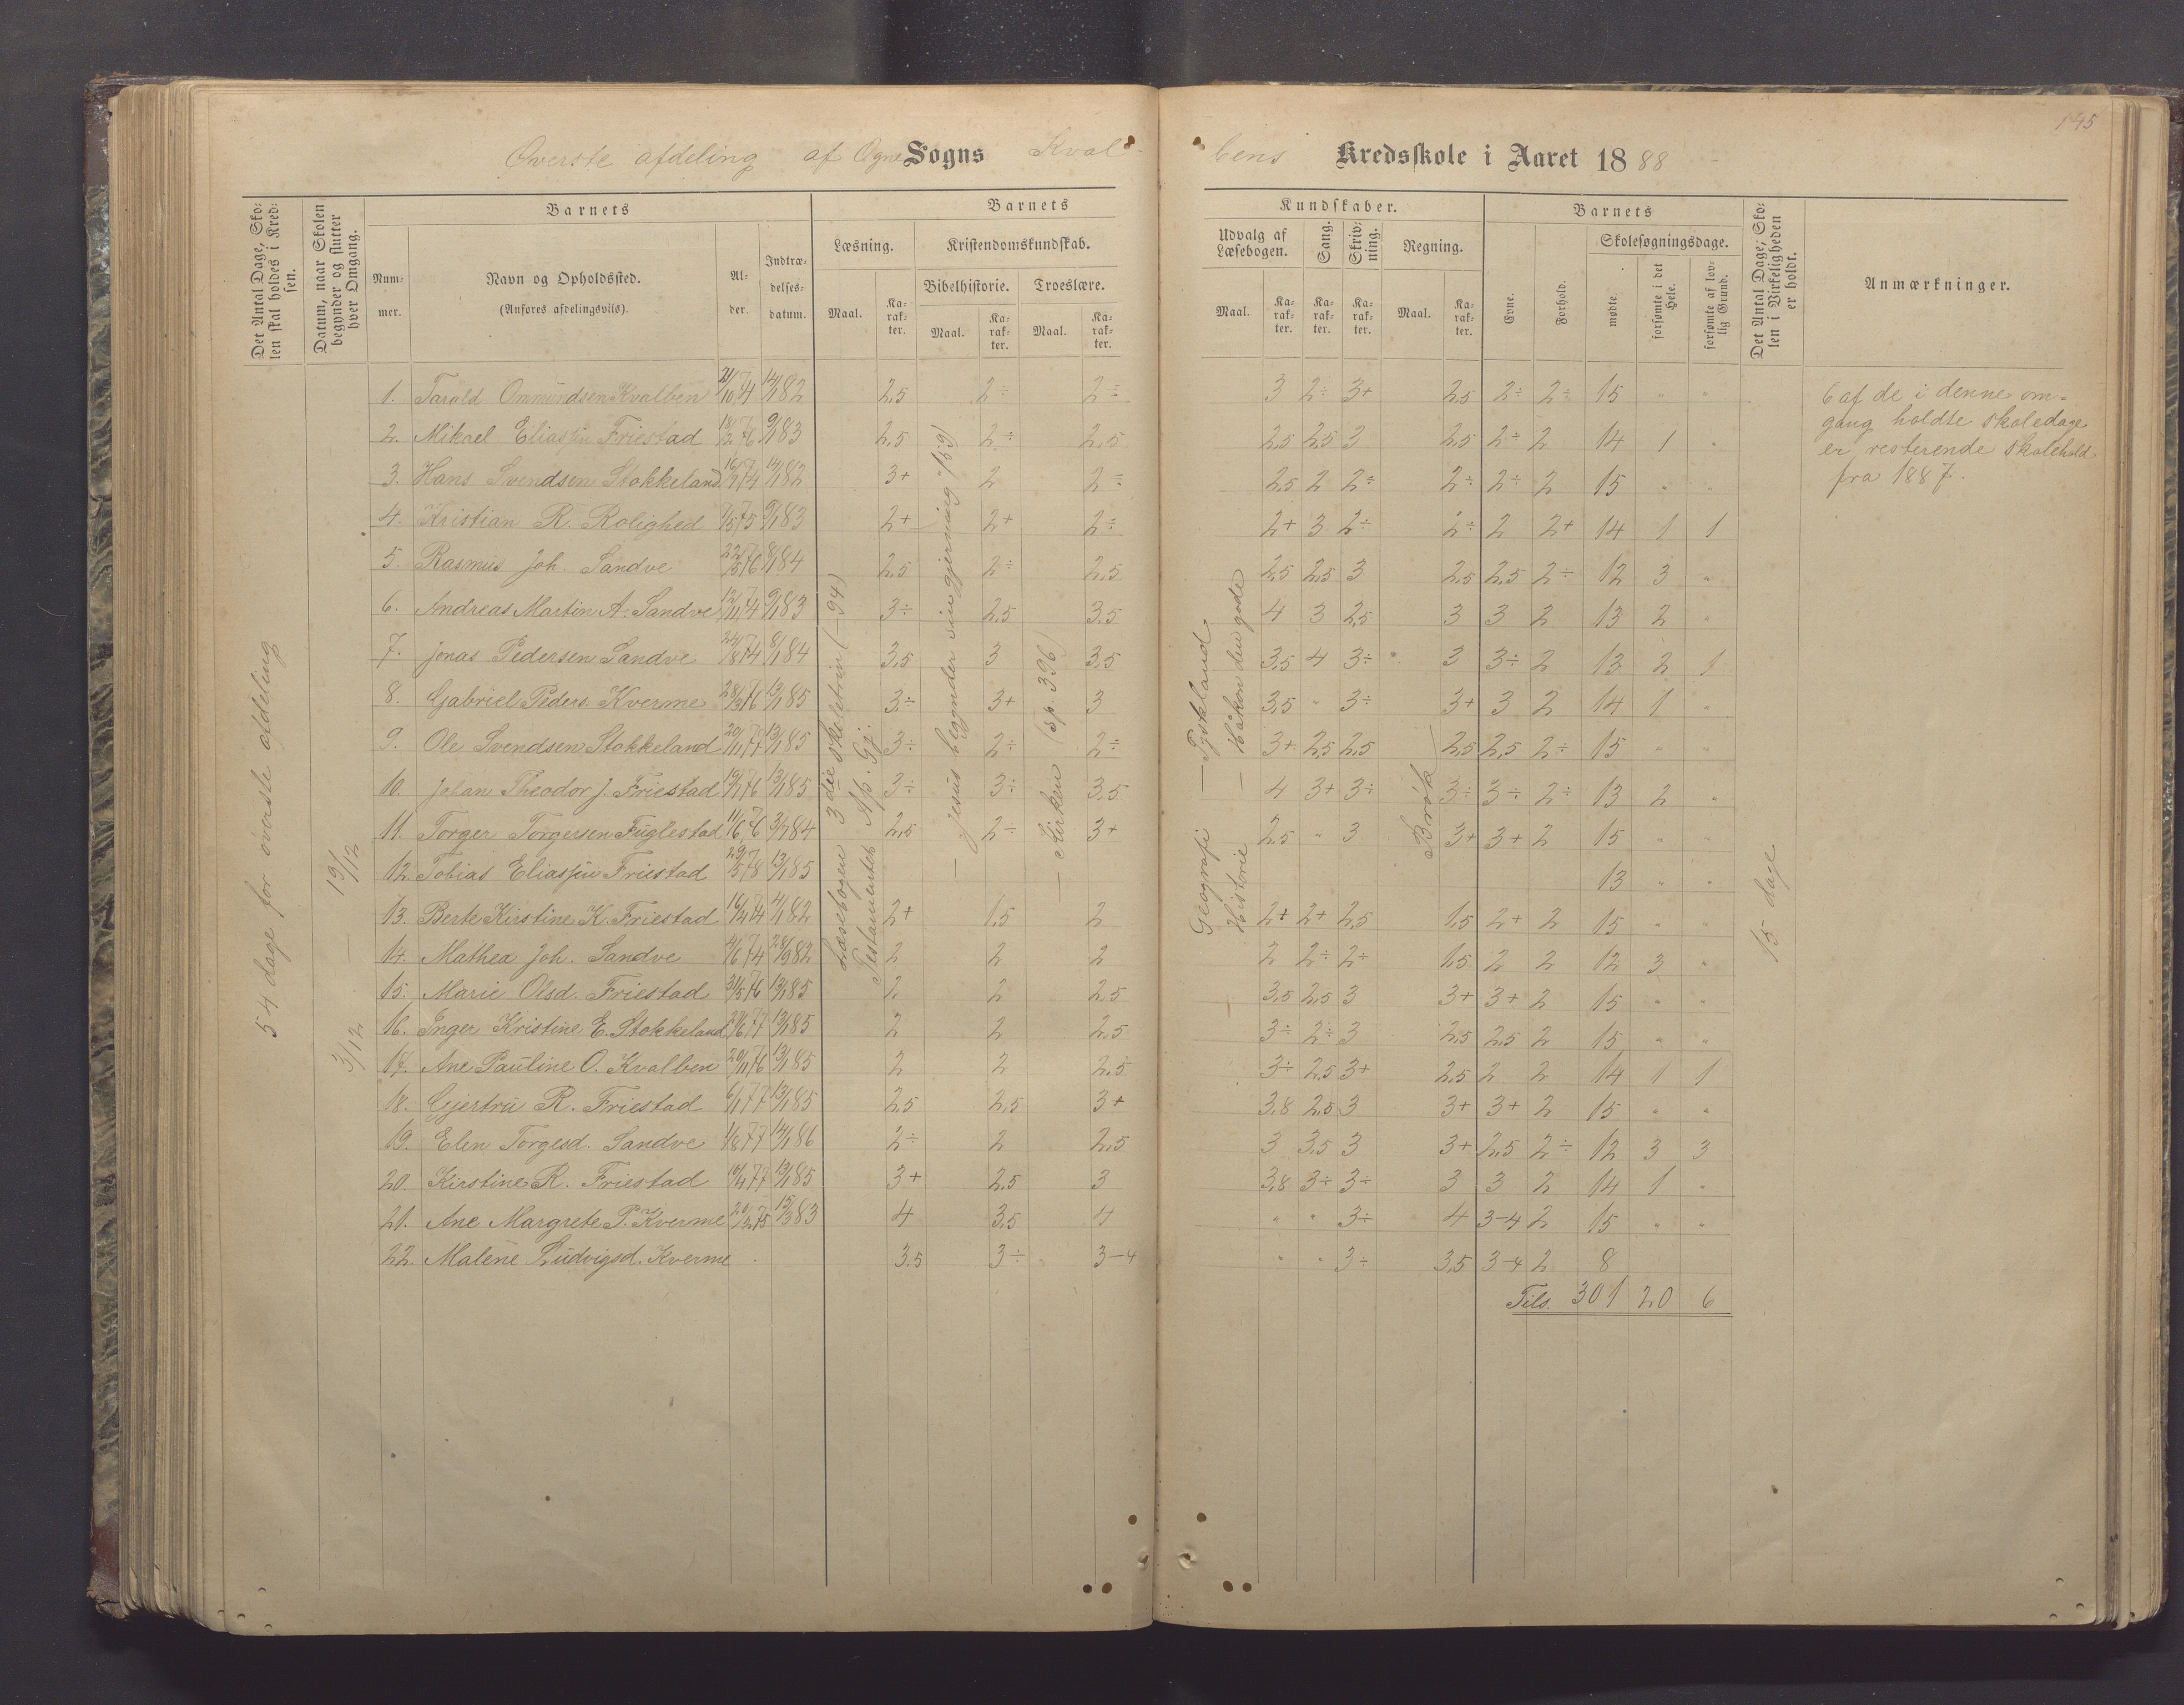 145
Øverste afdeling af Ogne Sogns Kval-
bens Kredsskole i Aaret 1888
Det Antal Dage, Sko-
len skal holdes i Kred-
sen.
Datum, naar Skolen
begynder og slutter
hver Omgang.
Barnets
Num-
mer.
Navn og Opholdssted.
(Anføres afdelingsviis).
Al-
der.
Indtræ-
delses-
datum.
Barnets
Læsning.
Maal.
Ka-
rak-
ter.
Kristendomskundskab.
Bibelhistorie.
Maal.
Ka-
rak-
ter.
Troeslære.
Maal.
Ka-
rak-
ter.
Kundskaber.
Udvalg af
Læsebogen.
Maal.
Ka-
rak-
ter.
Sang.
Ka-
rak-
ter.
Skriv-
ning.
Ka-
rak-
ter.
Regning.
Maal.
Ka-
rak-
ter.
Barnets
Evne.
Forhold.
Skolesøgningsdage.
mødte.
forsømte i det
Hele.
forsømte af lov-
lig Grund.
Det Antal Dage, Sko-
len i Virkeligheden
er holdt.
Anmærkninger.
54 dage for øverste afdeling
3/12 — 19/12
Læsebogen 3die skoletrin (—94)
Testamentet Ap. Gj.
— Jesus begynder sin gjerning (159)
— Kirken (sp. 396)
Geografi — Tyskland
Historie — Håkon den gode
Brøk —
15 dage
6 af de i denne om-
gang holdte skoledage
er resterende skolehold
fra 1887.
1. Tarald Ommundsen Kvalben 21/10 74 14/1 82 2,5 2÷ 2÷ 3 2÷ 3+ 2,5 2÷ 2÷ 15 " "
2. Mikael Eliassen Friestad 18/2 76 9/1 83 2,5 2÷ 2,5 2,5 2,5 3 2,5 2÷ 2 14 1 "
3. Hans Svendsen Stokkeland 16/7 74 14/1 82 3+ 2 2÷ 2,5 2 2÷ 2÷ 2÷ 2 15 " "
4. Kristian R. Rolighed 7/5 75 9/1 83 2+ 2+ 2÷ 2+ 3 2÷ 2÷ 2 2+ 14 1 1
5. Rasmus Joh. Sandve 22/5 76 8/1 84 2,5 2÷ 2,5 2,5 2,5 3 2,5 2,5 2÷ 12 3 "
6. Andreas Martin A. Sandve 12/11 74 9/1 83 3÷ 2,5 3,5 4 3 2,5 3 3 2 13 2 "
7. Jonas Pedersen Sandve 24/8 74 8/1 84 3,5 3 3,5 3,5 4 3÷ 3 3÷ 2 13 2 1
8. Gabriel Peders. Kverme 28/3 76 13/1 85 3÷ 3+ 3 3,5 " 3÷ 3+ 3 2 14 1 "
9. Ole Svendsen Stokkeland 20/11 77 13/1 85 3÷ 2÷ 2÷ 3+ 2,5 2,5 2,5 2,5 2÷ 15 " "
10. Johan Theodor J. Friestad 76 13/1 85 3÷ 3÷ 3,5 4 3+ 3÷ 3÷ 3÷ 2÷ 13 2 "
11. Torger Torgersen Fuglestad 11/6 76 3/7 84 2,5 2÷ 3+ 2,5 " 3 3+ 3+ 2 15 " "
12. Tobias Eliassen Friestad 29/5 78 13/1 85 13 " "
13. Berte Kirstine K. Friestad 16/4 74 4/1 82 2+ 1,5 2 2+ 2+ 2,5 1,5 2+ 2 15 " "
14. Mathea Joh. Sandve 4/6 74 28/9 82 2 2 2 2 2÷ 2÷ 1,5 2 2 12 3 "
15. Marie Olsd. Friestad 31/5 76 13/1 85 2 2 2,5 3,5 2,5 3 3+ 3+ 2 15 " "
16. Inger Kristine E. Stokkeland 77 13/1 85 2 2 2,5 3÷ 2÷ 3 2,5 2,5 2 15 " "
17. Ane Pauline O. Kvalben 20/11 76 13/1 85 2 2 2,5 3÷ 2,5 3+ 2,5 2 2 14 1 1
18. Gjertru R. Friestad 6/1 77 13/1 85 2,5 2,5 3+ 3,8 2,5 3 3+ 3+ 2 15 " "
19. Elen Torgesd. Sandve 1/8 77 14/1 86 2÷ 2 2,5 3 3,5 3 3+ 2,5 2÷ 12 3 3
20. Kirstine R. Friestad 10/4 77 13/1 85 3+ 2,5 3 3,8 3÷ 3÷ 3 3 2 14 1 "
21. Ane Margrete P. Kverme 75 15/3 83 4 3,5 4 " " 3÷ 4 3-4 2 15 " "
22. Malene Ludvigsd. Kverme 3.5 3÷ 3-4 " " 3÷ 3,5 3-4 2 8
Tils. 301 20 6